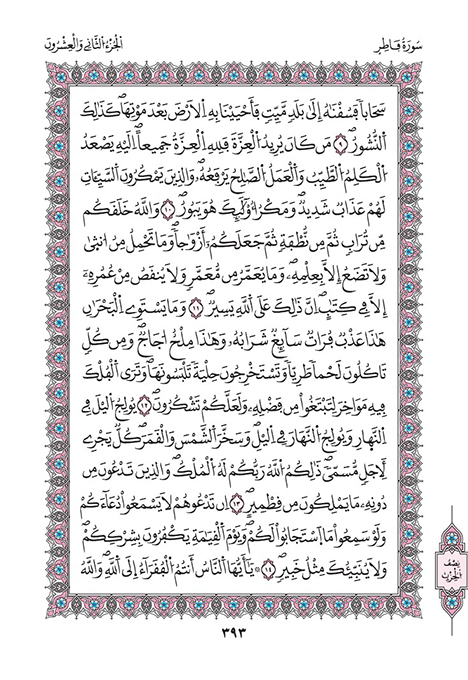 سُورَةُ فَاطِرٍ
الجُزْءُ الثَّانِي وَالْعِشْرُونَ
سَحَاباً فَسُقْنَٰهُ إِلَىٰ بَلَدٖ مَّيِّتٖ فَأَحْيَيْنَا بِهِ اِ۬لْأَرْضَ بَعْدَ مَوْتِهَاۖ كَذَٰلِكَ
اَ۬لنُّشُورُۖ ٩ مَن كَانَ يُرِيدُ اُ۬لْعِزَّةَ فَلِلهِ اِ۬لْعِزَّةُ جَمِيعاًۖ اِلَيْهِ يَصْعَدُ
اُ۬لْكَلِمُ اُ۬لطَّيِّبُ وَالْعَمَلُ اُ۬لصَّٰلِحُ يَرْفَعُهُۥۖ وَالذِينَ يَمْكُرُونَ اَ۬لسَّيِّـَٔاتِ
لَهُمْ عَذَابٞ شَدِيدٞۖ وَمَكْرُ أُوْلَٰٓئِكَ هُوَ يَبُورُۖ ١٠ وَاللَّهُ خَلَقَكُم
مِّن تُرَابٖ ثُمَّ مِن نُّطْفَةٖ ثُمَّ جَعَلَكُمُۥٓ أَزْوَٰجاًۖ وَمَا تَحْمِلُ مِنُ ا۟نث۪ىٰ
وَلَا تَضَعُ إِلَّا بِعِلْمِهِۦۖ وَمَا يُعَمَّرُ مِن مُّعَمَّرٖ وَلَا يُنقَصُ مِنْ عُمُرِهِۦٓ
إِلَّا فِي كِتَٰبٍۖ اِنَّ ذَٰلِكَ عَلَى اَ۬للَّهِ يَسِيرٞۖ ١١ وَمَا يَسْتَوِے اِ۬لْبَحْرَٰنِ
هَٰذَا عَذْبٞ فُرَاتٞ سَآئِغٞ شَرَابُهُۥ وَهَٰذَا مِلْحٌ ا۟جَاجٞۖ وَمِن كُلّٖ
تَاكُلُونَ لَحْماٗ طَرِيّاٗ وَتَسْتَخْرِجُونَ حِلْيَةٗ تَلْبَسُونَهَاۖ وَتَرَى اَ۬لْفُلْكَ
فِيهِ مَوَاخِرَ لِتَبْتَغُواْ مِن فَضْلِهِۦ وَلَعَلَّكُمْ تَشْكُرُونَۖ ١٢ يُولِجُ اُ۬ليْلَ فِي
اِ۬لنَّهَارِ وَيُولِجُ اُ۬لنَّهَارَ فِي اِ۬ليْلِۖ وَسَخَّرَ اَ۬لشَّمْسَ وَالْقَمَرَۖ كُلّٞ يَجْرِے
لِأَجَلٖ مُّسَمّىٗۖ ذَٰلِكُمُ اُ۬للَّهُ رَبُّكُمْ لَهُ اُ۬لْمُلْكُۖ وَالذِينَ تَدْعُونَ مِن
دُونِهِۦ مَا يَمْلِكُونَ مِن قِطْمِيرٍۖ ١٣ اِن تَدْعُوهُمْ لَا يَسْمَعُواْ دُعَآءَكُمْ
وَلَوْ سَمِعُواْ مَا اَ۪سْتَجَابُواْ لَكُمْۖ وَيَوْمَ اَ۬لْقِيَٰمَةِ يَكْفُرُونَ بِشِرْكِكُمْۖ
وَلَا يُنَبِّئُكَ مِثْلُ خَبِيرٖۖ ١٤ يَٰٓأَيُّهَا اَ۬لنَّاسُ أَنتُمُ اُ۬لْفُقَرَآءُ اِ۪لَى اَ۬للَّهِۖ وَاللَّهُ
نِصْفُ
الحِزْبِ
٣٩٣